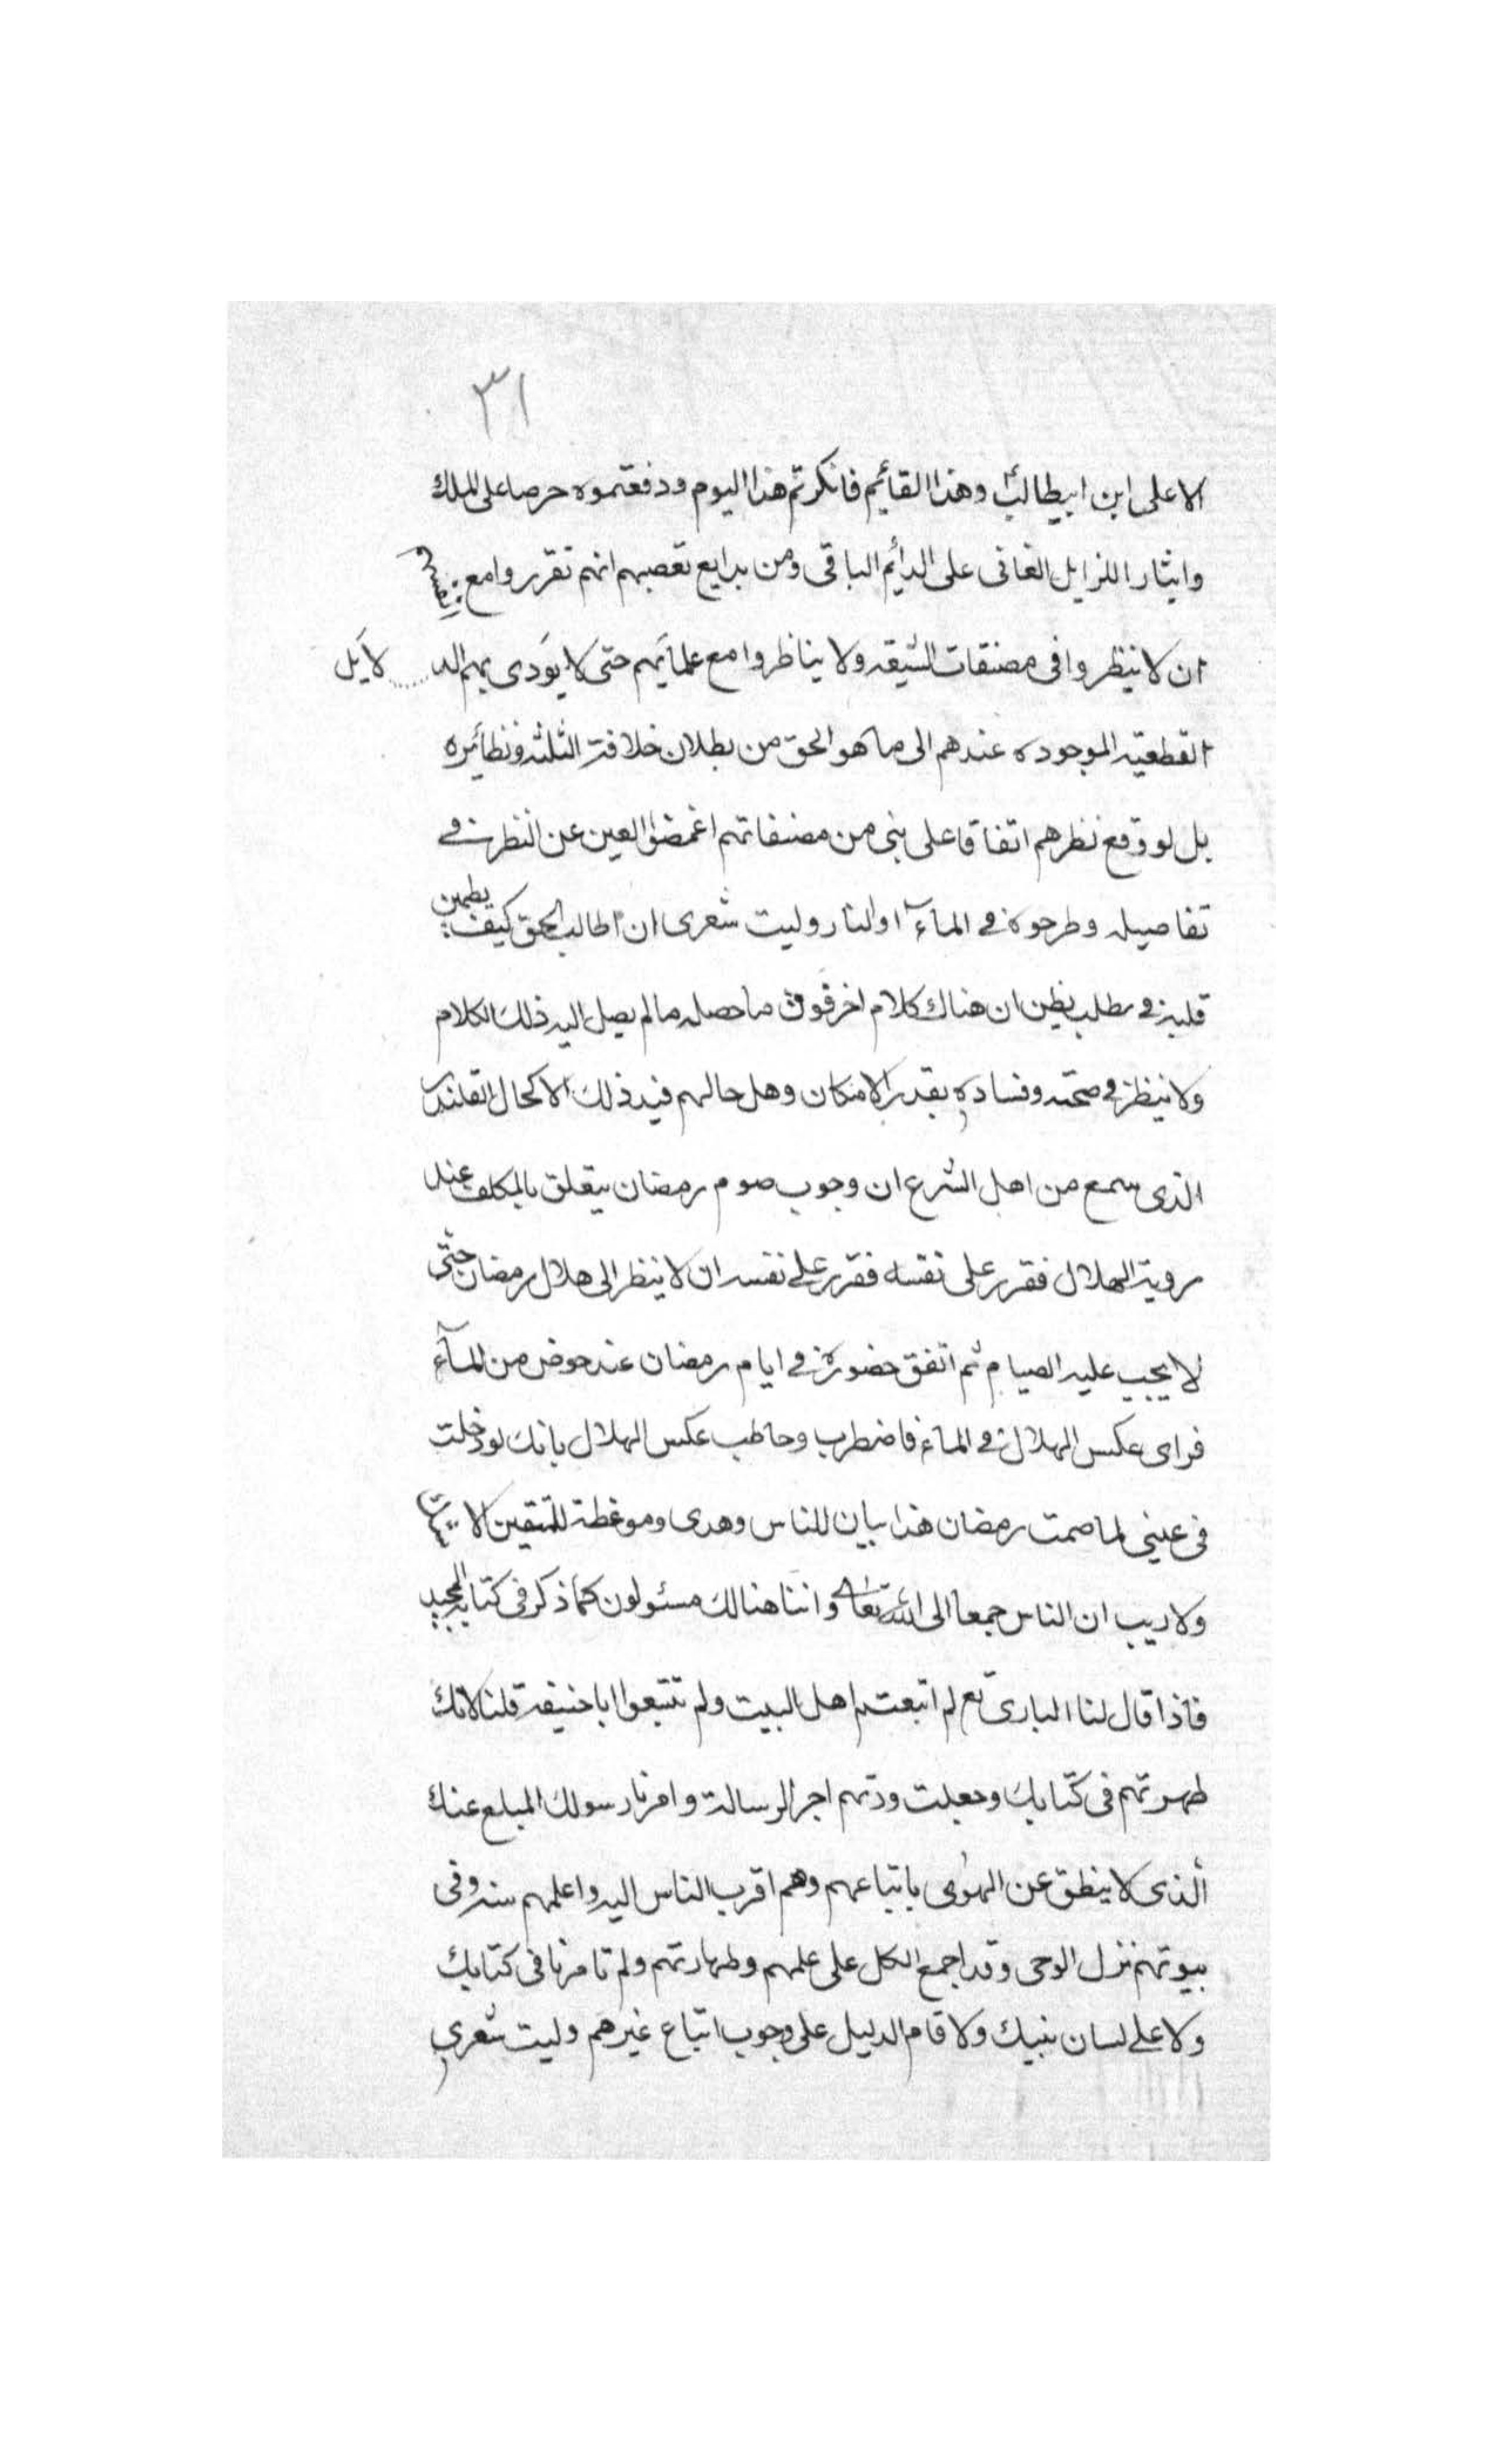 ٣١
الا علی ابن ابیطالب وهذا القائیم فانکرتم هذا الیوم ودفعتموه حرصا علی الملك
وایثار اللزایل الفانی علی الدائیم الباقی ومن بدایع تعصبهم انهم تقرروا مع انفسهم
ان لا ینظروا فی مصنفات الشیعه ولا یناظروا مع علمائیهم حتی لا یؤدی بهم الد.....لایل
القطعیه الموجوده عندهم الی ما هو الحق من بطلان خلافة الثلثه ونظائیره
بل لو وقع نظرهم اتفاقا علی بنی من مصنفاتهم اغمضوا العین عن النظر فی
تفاصیله وطرحوه فی المآء او النار ولیت شعری ان طالب الحق کیف یطمین
قلبه فی مطلب یظن ان هناك کلام اخر فوق ما حصله ما لم یصل الیه ذلك الکلام
ولا ینظر فی صحته وفساده بقدر الامکان وهل حالهم فی ذلك الا کحال القلندر
الذی سمع من اهل الشرع ان وجوب صوم رمضان یتعلق بالمکلف عند
رویة الهلال فقرر علی نفسه فقرر علی نفسه ان لا ینظر الی هلال رمضان حتی
لا یجب علیه الصیام ثم اتفق حضوره فی ایام رمضان عند حوض من المآء
فرای عکس الهلال فی المآء فاضطرب وخاطب عکس الهلال بانك لو دخلت
فی عینی لما صمت رمضان هذا بیان للناس وهدی وموعظة للمتقین لا
ولا ریب ان الناس جمعا الی الله تعالی واننا هنالك مسئولون کما ذکر فی کتابه المجید
فاذا قال لنا الباری تع لم اتبعتم اهل البیت ولم تتبعوا ابا حنیفة قلنا لانك
طهرتهم فی کتابك وجعلت ودتهم اجر الرسالة وامرنا رسولك المبلغ عنك
الذی لا ینطق عن الهوی باتباعهم وهم اقرب الناس الیه واعلمهم سنه وفی
بیوتهم نزل الوحی وقد اجمع الکل علی علمهم وطهارتهم ولم تامرنا فی کتابك
ولا علی لسان نبیك ولا قام الدلیل علی وجوب اتباع غیرهم ولیت شعری